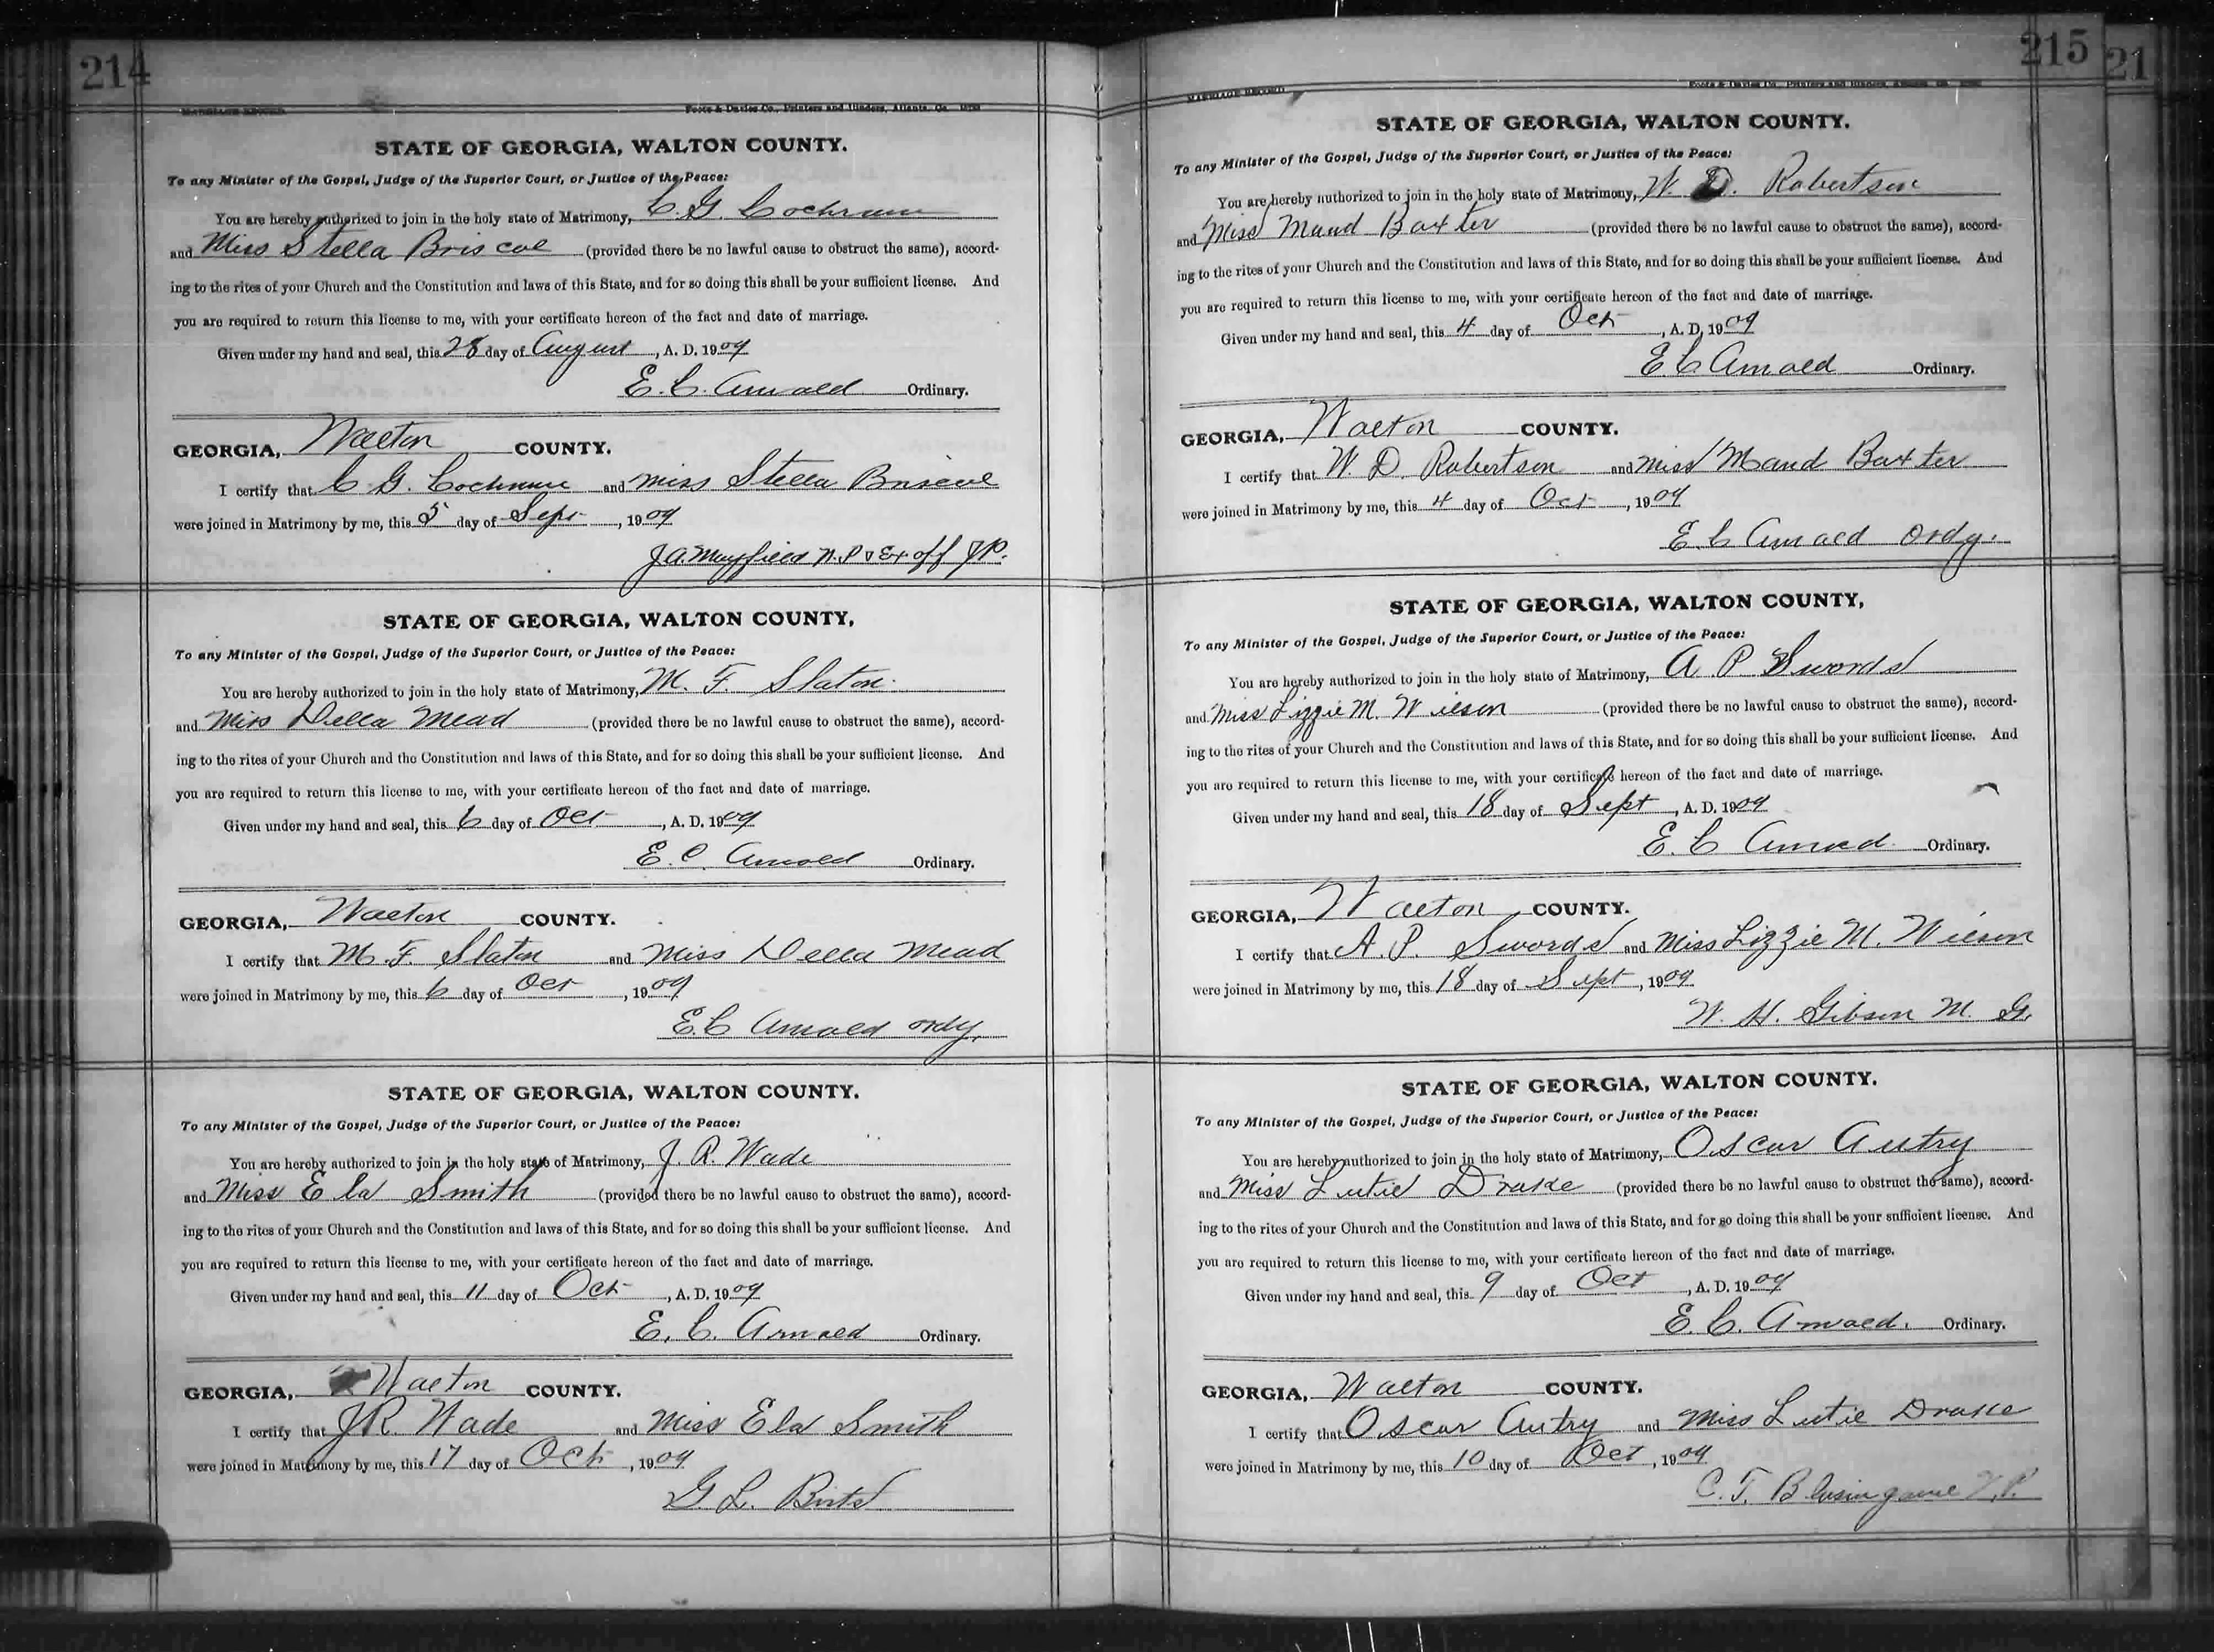 214
MARRIAGE RECORD
Foote & Davies Co., Printers and Binders, Atlanta, Ga.
STATE OF GEORGIA, WALTON COUNTY.
To any Minister of the Gospel, Judge of the Superior Court, or Justice of the Peace:
You are hereby authorized to join in the holy state of Matrimony, C. G. Cochran
and Miss Stella Briscoe (provided there be no lawful cause to obstruct the same), accord-
ing to the rites of your Church and the Constitution and laws of this State, and for so doing this shall be your sufficient license. And
you are required to return this license to me, with your certificate hereon of the fact and date of marriage.
Given under my hand and seal, this 28 day of August, A. D. 1909
E. C. Arnold Ordinary.
GEORGIA, Walton COUNTY.
I certify that C. G. Cochran and Miss Stella Briscoe
were joined in Matrimony by me, this 5 day of Sept, 1909
J A Mayfield N. P & Ex off J.P.
STATE OF GEORGIA, WALTON COUNTY,
To any Minister of the Gospel, Judge of the Superior Court, or Justice of the Peace:
You are hereby authorized to join in the holy state of Matrimony, M. F. Slaton
and Miss Della Mead (provided there be no lawful cause to obstruct the same), accord-
ing to the rites of your Church and the Constitution and laws of this State, and for so doing this shall be your sufficient license. And
you are required to return this license to me, with your certificate hereon of the fact and date of marriage.
Given under my hand and seal, this 6 day of Oct, A. D. 1909
E. C. Arnold Ordinary.
GEORGIA, Walton COUNTY.
I certify that M. F. Slaton and Miss Della Mead
were joined in Matrimony by me, this 6 day of Oct, 1909
E. C Arnold ordy.
STATE OF GEORGIA, WALTON COUNTY.
To any Minister of the Gospel, Judge of the Superior Court, or Justice of the Peace:
You are hereby authorized to join in the holy state of Matrimony, J. R. Wade
and Miss Ela Smith (provided there be no lawful cause to obstruct the same), accord-
ing to the rites of your Church and the Constitution and laws of this State, and for so doing this shall be your sufficient license. And
you are required to return this license to me, with your certificate hereon of the fact and date of marriage.
Given under my hand and seal, this 11 day of Oct, A. D. 1909
E. C. Arnold Ordinary.
GEORGIA, Walton COUNTY.
I certify that J R. Wade and Miss Ela Smith
were joined in Matrimony by me, this 17 day of Oct, 1909
G. L.
215
21
MARRIAGE RECORD
Foote & Davies Co., Printers and Binders, Atlanta, Ga.
STATE OF GEORGIA, WALTON COUNTY.
To any Minister of the Gospel, Judge of the Superior Court, or Justice of the Peace:
You are hereby authorized to join in the holy state of Matrimony, W. D. Robertson
and Miss Maud Baxter (provided there be no lawful cause to obstruct the same), accord-
ing to the rites of your Church and the Constitution and laws of this State, and for so doing this shall be your sufficient license. And
you are required to return this license to me, with your certificate hereon of the fact and date of marriage.
Given under my hand and seal, this 4 day of Oct, A. D, 1909
E. C Arnold Ordinary.
GEORGIA, Walton COUNTY.
I certify that W. D. Robertson and Miss Maud Baxter
were joined in Matrimony by me, this 4 day of Oct, 1909
E. C Arnold Ordy.
STATE OF GEORGIA, WALTON COUNTY,
To any Minister of the Gospel, Judge of the Superior Court, or Justice of the Peace:
You are hereby authorized to join in the holy state of Matrimony, A P Swords
and Miss Lizzie M. Wilson (provided there be no lawful cause to obstruct the same), accord-
ing to the rites of your Church and the Constitution and laws of this State, and for so doing this shall be your sufficient license. And
you are required to return this license to me, with your certificate hereon of the fact and date of marriage.
Given under my hand and seal, this 18 day of Sept, A. D. 1909
E. C Arnold Ordinary.
GEORGIA, Walton COUNTY.
I certify that A. P. Swords and Miss Lizzie M. Wilson
were joined in Matrimony by me, this 18 day of Sept, 1909
W. H. Gibson M. G.
STATE OF GEORGIA, WALTON COUNTY.
To any Minister of the Gospel, Judge of the Superior Court, or Justice of the Peace:
You are hereby authorized to join in the holy state of Matrimony, Oscar Autry
and Miss Lutie Drake (provided there be no lawful cause to obstruct the same), accord-
ing to the rites of your Church and the Constitution and laws of this State, and for so doing this shall be your sufficient license. And
you are required to return this license to me, with your certificate hereon of the fact and date of marriage.
Given under my hand and seal, this 9 day of Oct, A. D. 1909
E. C. Arnold. Ordinary.
GEORGIA, Walton COUNTY.
I certify that Oscar Autry and Miss Lutie Drake
were joined in Matrimony by me, this 10 day of Oct, 1909
C. T. Blasingame